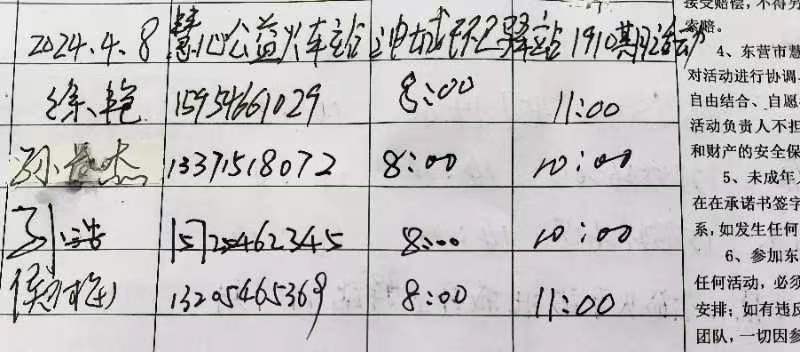 2024.4.8 慧心公益火车站 油城 驿站 1910期活动
徐艳 15954661029 8:00 11:00
孙 杰 13371518072 8:00 10:00
8:00 10:00
侯 13205465369 8:00 11:00
接受赔偿，不得另
索赔。
4、东营市慧
对活动进行协调
自由结合、自愿
活动负责人不担
和财产的安全保
5、未成年
在在承诺书签字
系，如发生任何
6、参加东
任何活动，必须
安排；如有违反
团队，一切因参